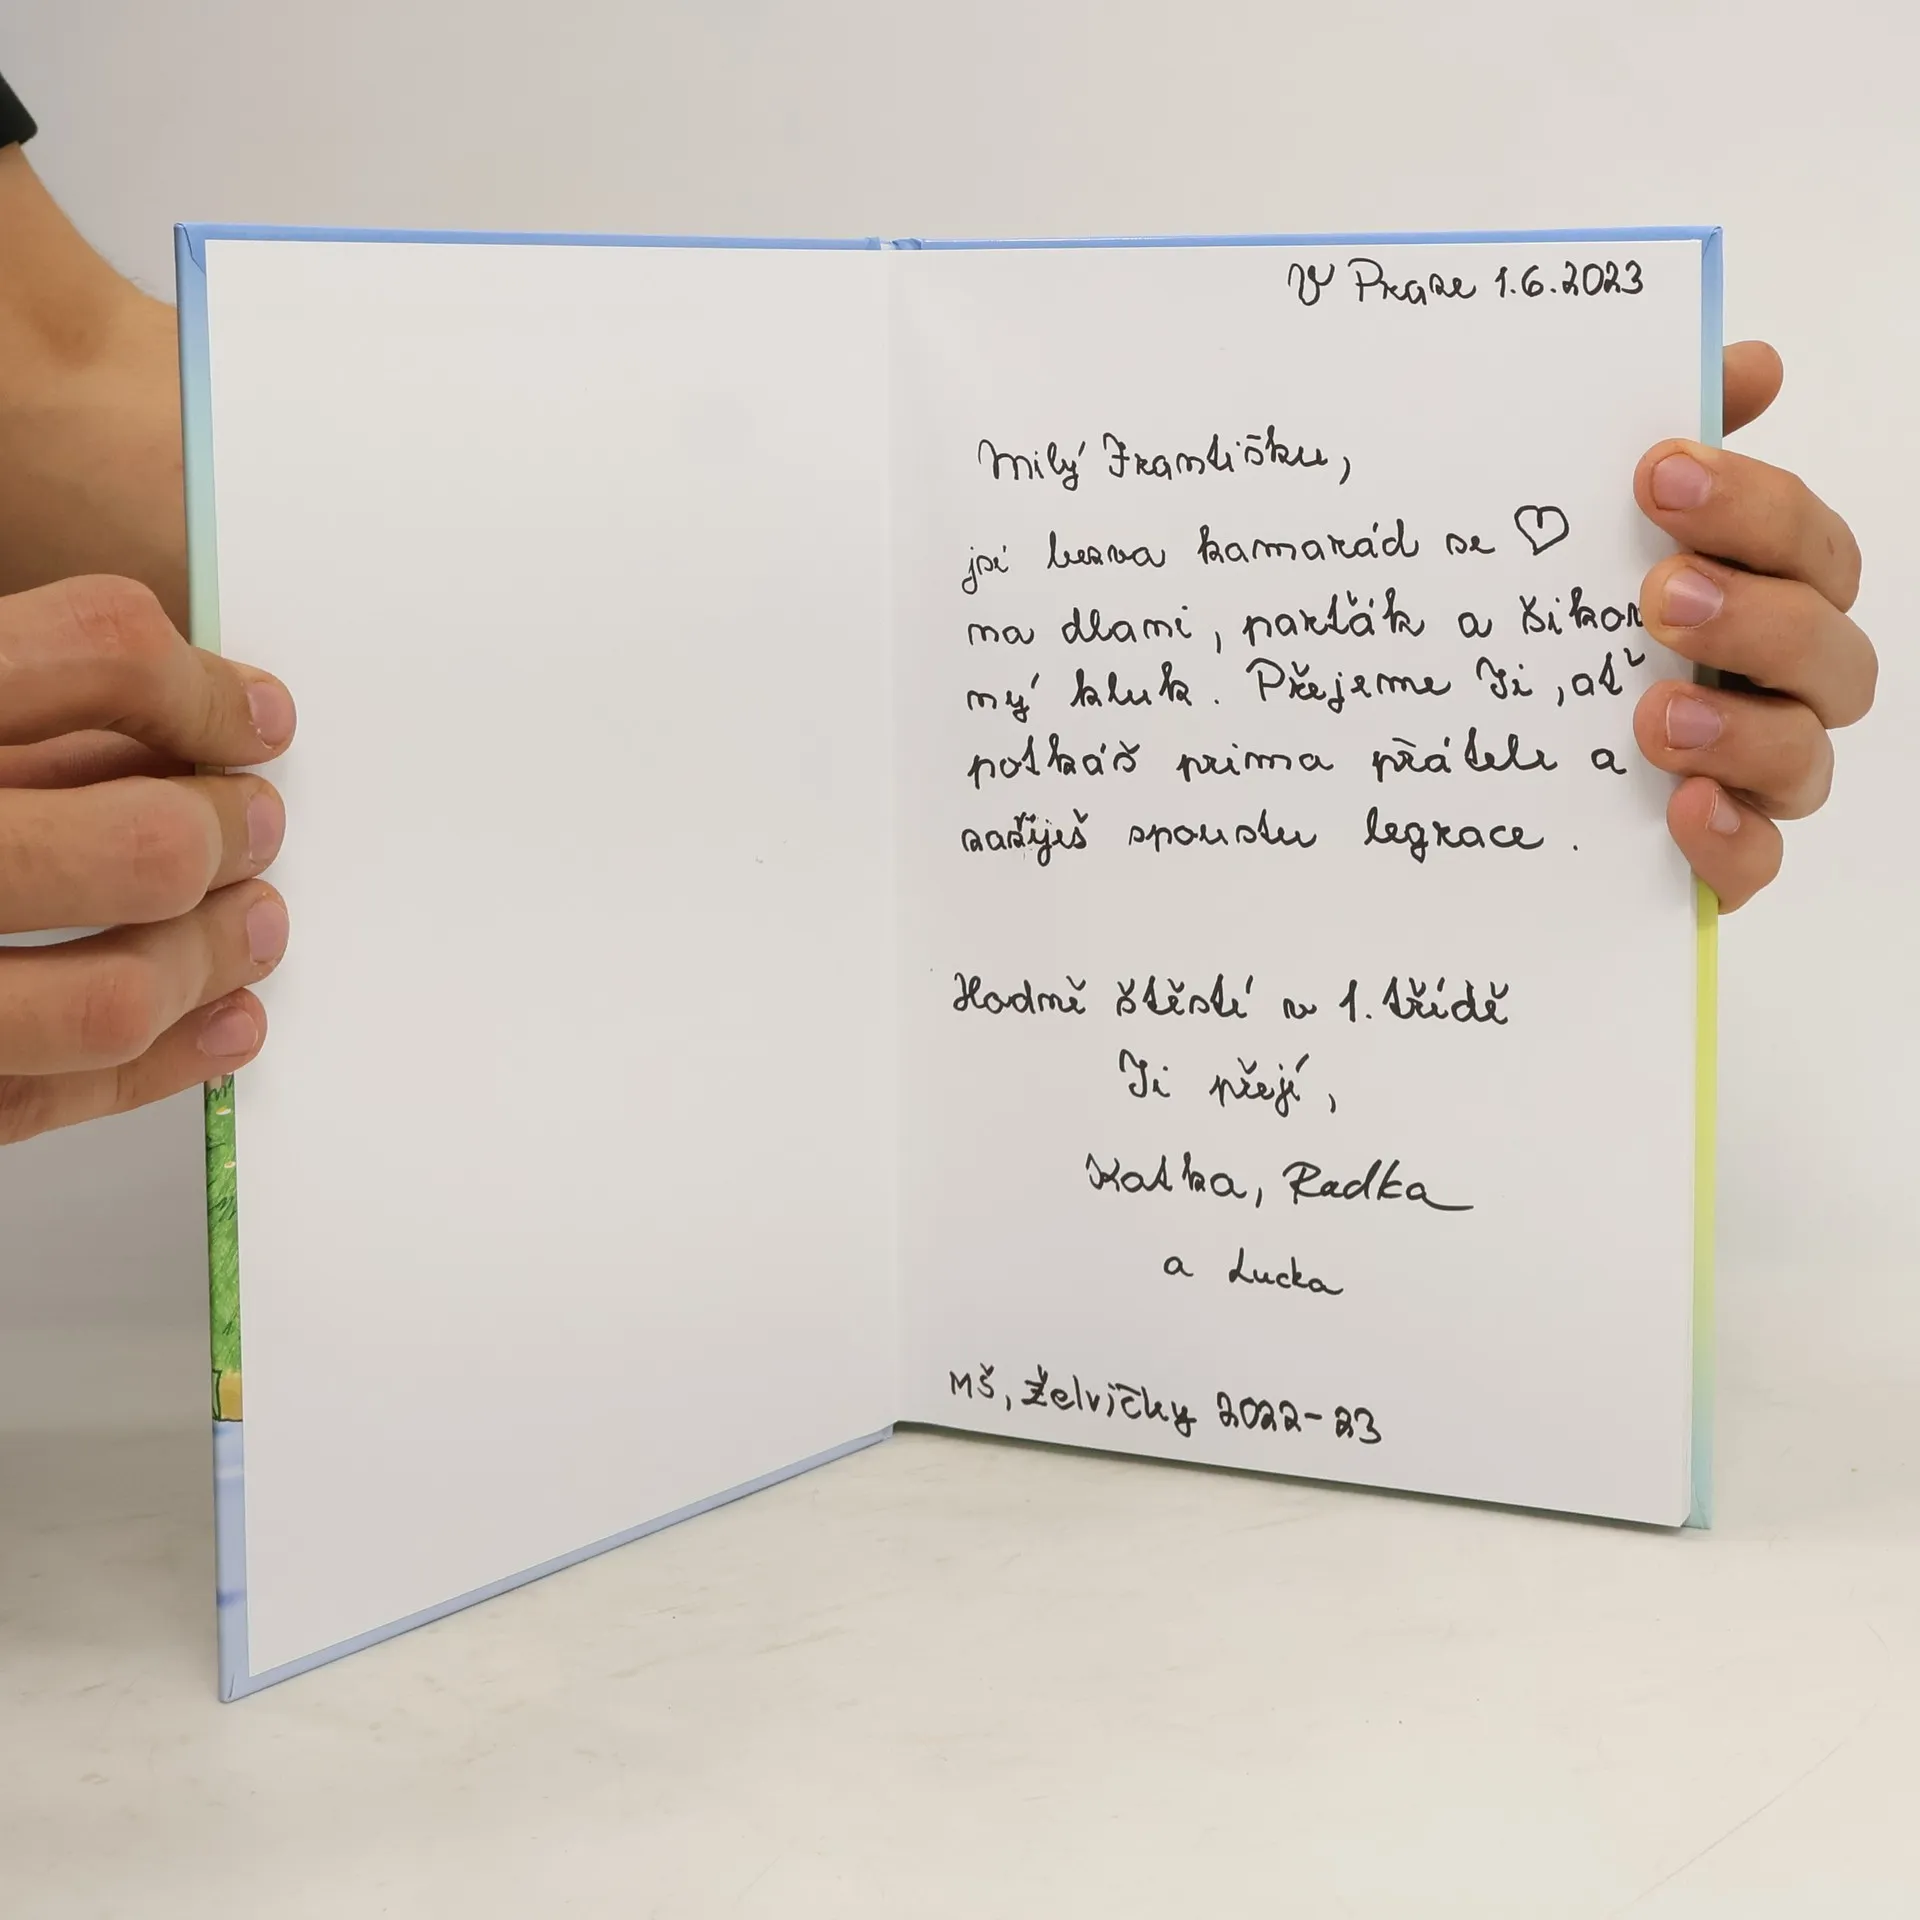 V Praze 1.6.2023
Milý Františku,
jsi bezva kamarád se ♡
na dlani, parťák a šikov
ný kluk. Přejeme Ti, ať
potkáš prima přátele a
zažiješ spoustu legrace.
Hodně štěstí v 1. třídě
Ti přejí,
Katka, Radka
a Lucka
MŠ, Želvičky 2022-23